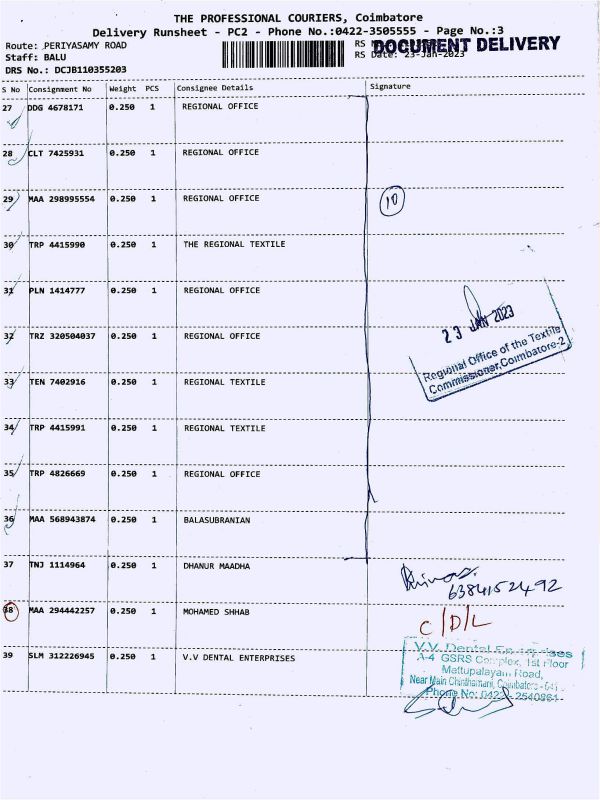 THE PROFESSIONAL COURIERS, Coimbatore
Delivery Runsheet - PC2 - Phone No.:0422-3505555 - Page No.:3
Route: PERIYASAMY ROAD
RS
DOCUMENT DELIVERY
Staff: BALU
RS Date: 23-Jan-2023
DRS No.: DCJB110355203
S No Consignment No Weight PCS Consignee Details Signature
27 DDG 4678171 0.250 1 REGIONAL OFFICE
28 CLT 7425931 0.250 1 REGIONAL OFFICE
29 MAA 298995554 0.250 1 REGIONAL OFFICE
10
30 TRP 4415990 0.250 1 THE REGIONAL TEXTILE
31 PLN 1414777 0.250 1 REGIONAL OFFICE
23 JAN 2023
32 TRZ 320504037 0.250 1 REGIONAL OFFICE
Regional Office of the Textile
Commissioner, Coimbatore-2
33 TEN 7402916 0.250 1 REGIONAL TEXTILE
34 TRP 4415991 0.250 1 REGIONAL TEXTILE
35 TRP 4826669 0.250 1 REGIONAL OFFICE
36 MAA 568943874 0.250 1 BALASUBRANIAN
37 TNJ 1114964 0.250 1 DHANUR MAADHA
6384152492
38 MAA 294442257 0.250 1 MOHAMED SHHAB
C/D/L
39 SLM 312226945 0.250 1 V.V DENTAL ENTERPRISES
V.V. Dental Enterprises
A-4 GSRS Complex, 1st Floor
Mattupalayam Road,
Near Main Chinthamani, Coimbatore - 641
Phone No: 0422 - 2540861